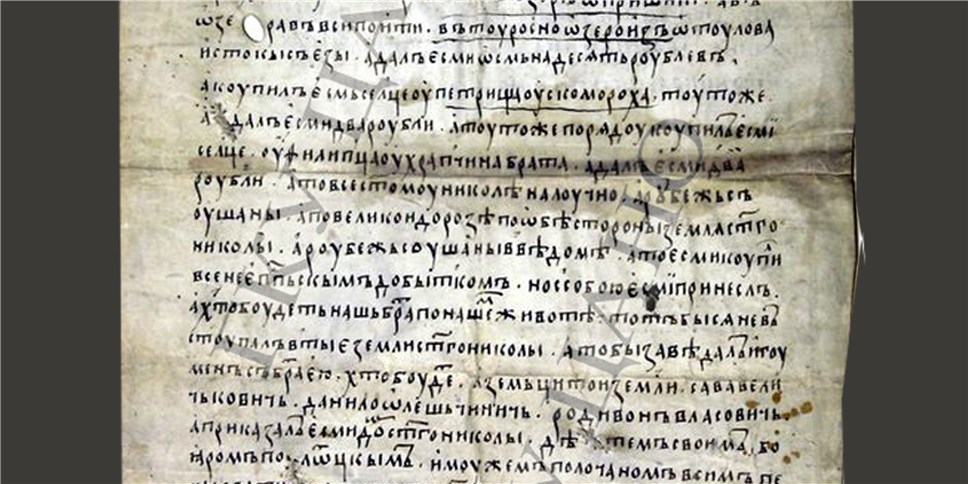 ѡзе равъ вси поити . въ тоу росно ѡзеро изъ ѡтоулова
истокы съ ѣзы . а далъ есми ѡсмьнадесѧть роублевъ .
а коупилъ есмь селце оу петрищѧ оу скомороха . тоуто же
а далъ есми два роубли . а тоуто же порѧдоу коупилъ есмі
селце . оу филипца оу храпчина брата . а далъ есми два
роубли . а то все стомоу николѣ на лоучно . а роубежь съ
оушаны . а по великои дорозѣ по ѡбѣ стороны землѧ стго
николы . а роубежь с оушаны в вѣдомѣ . а то есми коупи
все не еппьскымъ добыткомъ . но с собою есмі принеслъ .
а хто боудеть нашь бра по нашемь животѣ . тотъ бы сѧ не въ
стоупалъ в тые земли стго николы . а то бы завѣдалъ игоу
менъ с братею . хто боуде . а земьци тои земли . сава вели
чькович . данило ѡлешьчинич . родивонъ власович .
а приказалъ есми до стго николы . дѣтемъ своима . бо
ꙗромъ полоцкымъ . и моужемъ полочаномъ всимъ пе